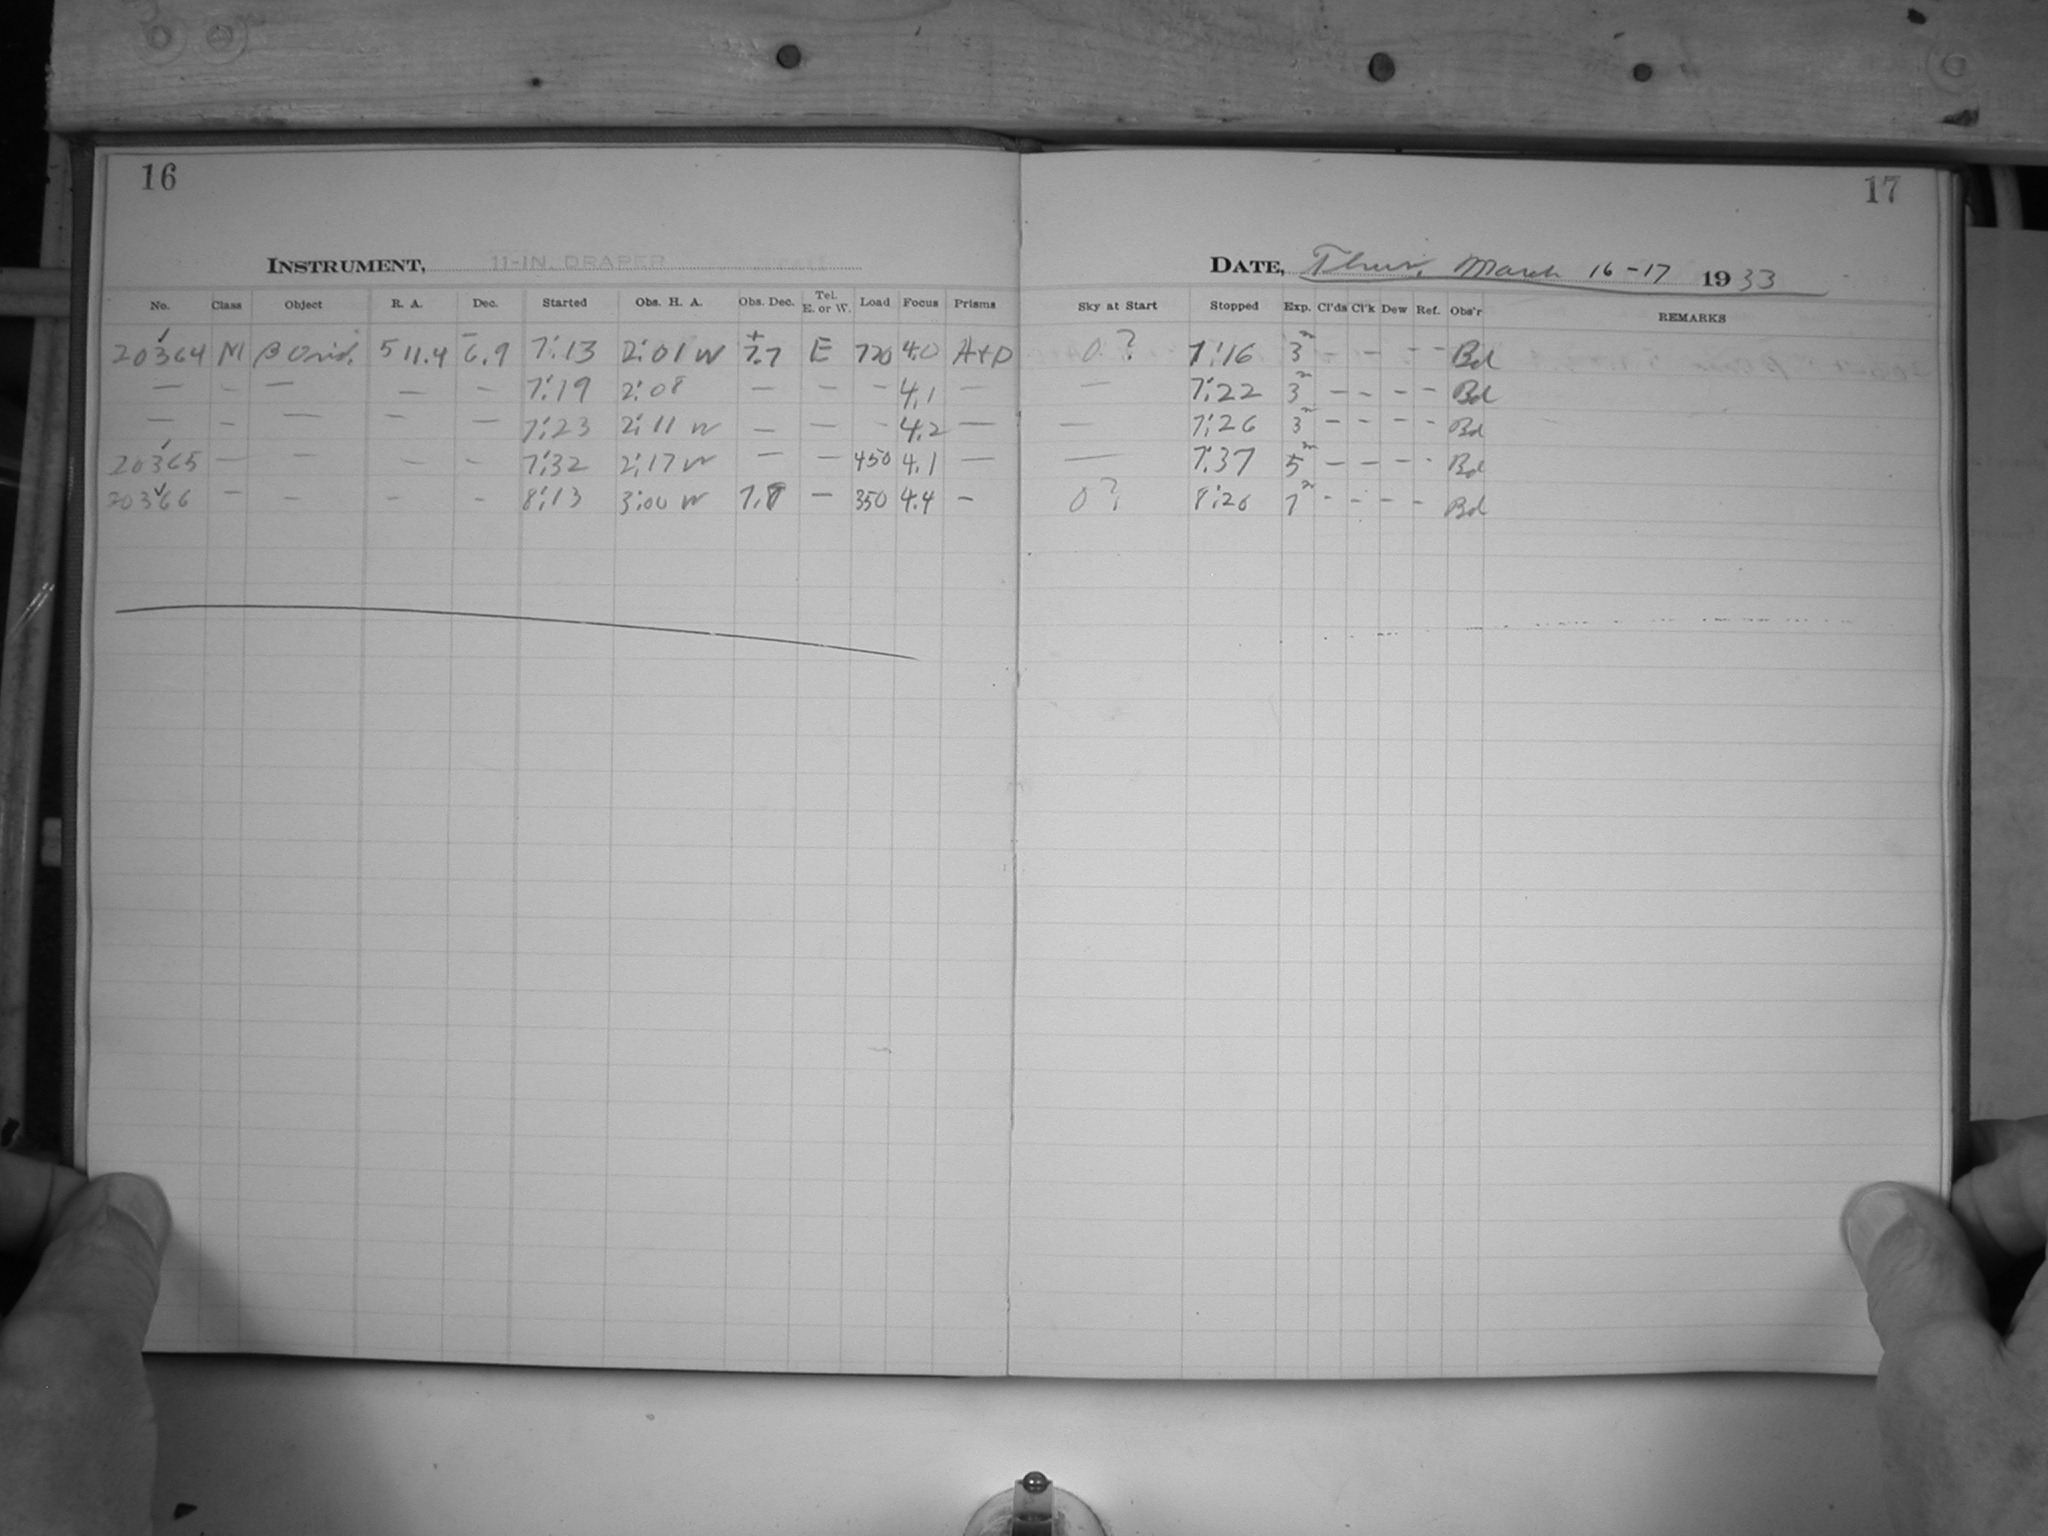 16
17
INSTRUMENT, 11-IN. DRAPER
DATE, Thur. March 16-17 1933
No. Class Object R. A. Dec. Started Obs. H. A. Obs. Dec. Tel. E. or W. Load Focus Prisms Sky at Start Stopped Exp. Cl'ds Cl'k Dew Ref. Obs'r REMARKS
20364 M β Orid. 5 11.4 -6.9 7:13 2:01 W +7.7 E 720 4.0 A+D 0? 7:16 3m - - - - Bd
— - — — - 7:19 2:08 — — - 4.1 — 7:22 3m - - - - Bd
— - — — — 7:23 2:11 W — — - 4.2 — — 7:26 3m - - - - Bd
20365 — — - - 7:32 2:17 W — — 450 4.1 — — 7:37 5m - - - - Bd
20366 - - - - 8:13 3:00 W 7.8 — 350 4.4 - 0? 8:20 7m - - - - Bd